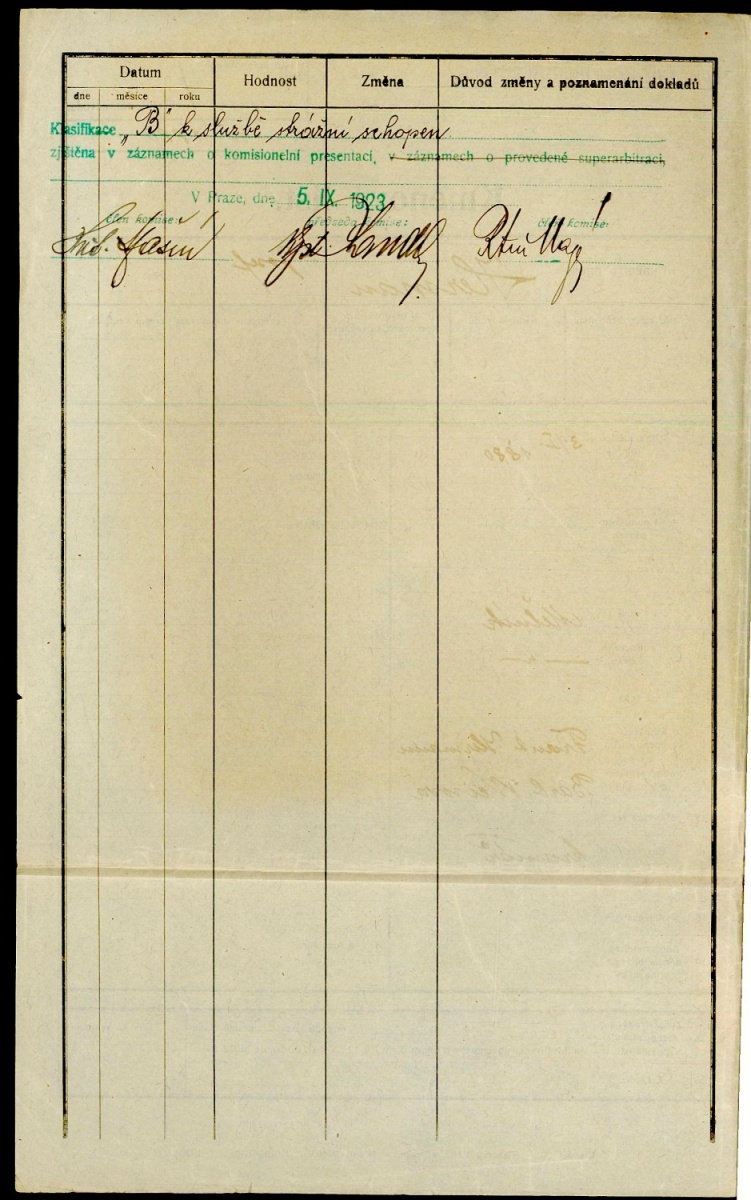 Datum Hodnost Změna Důvod změny a poznamenání dokladů
dne měsíce roku
Klasifikace „B" k službě strážní schopen
zjištěna v záznamech o komisionelní presentaci, v záznamech o provedené superarbitraci,
V Praze, dne 5. IX. 1923
člen komise: předseda komise: člen komise: